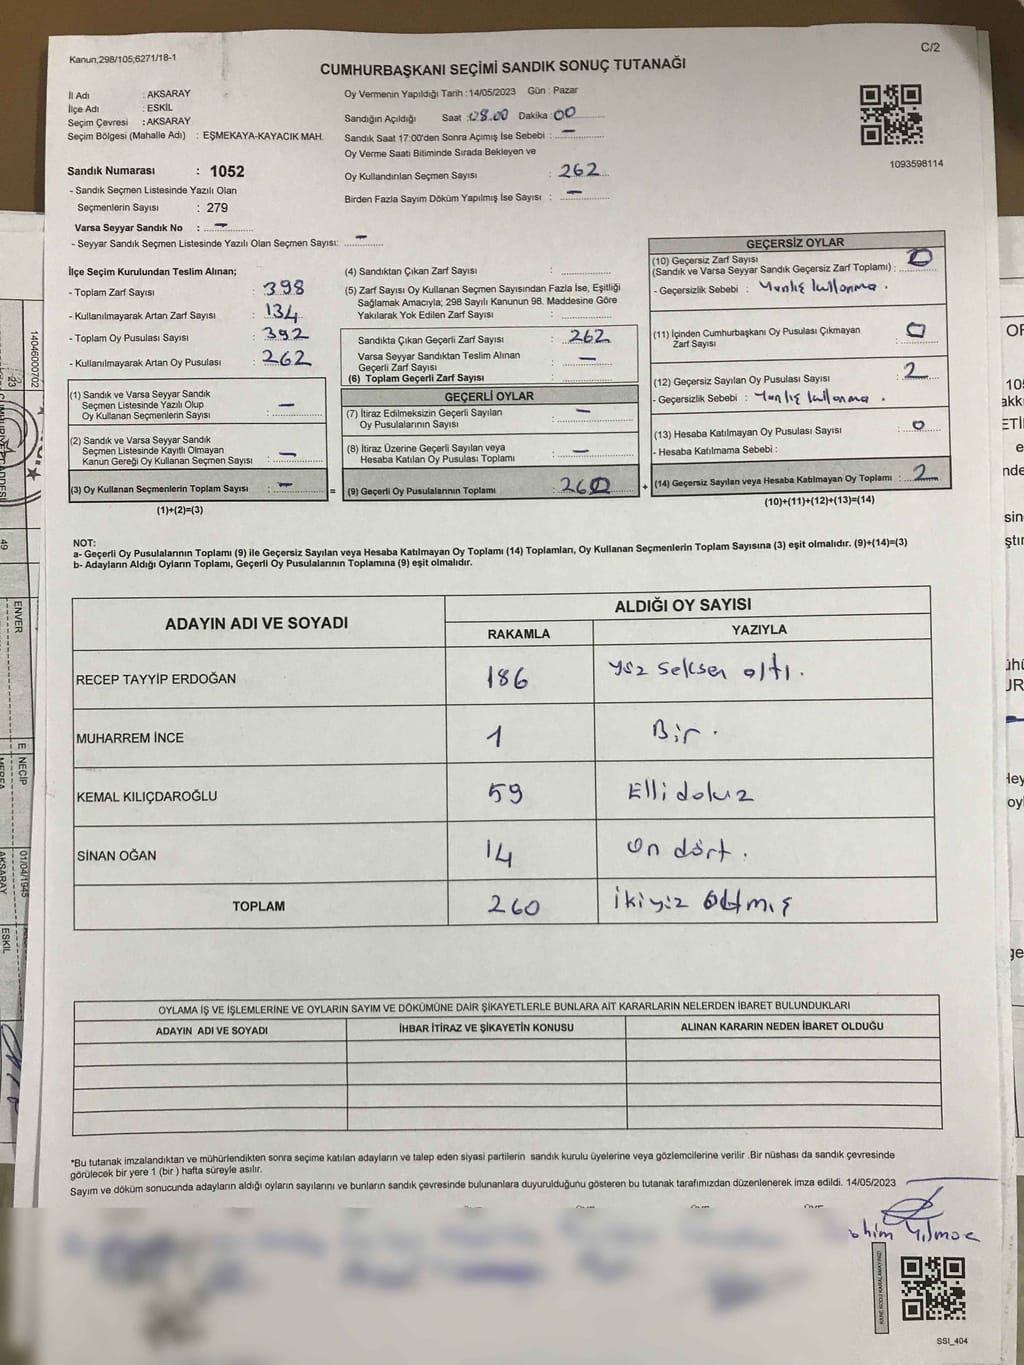 Kanun;298/105;6271/18-1
C/2
CUMHURBAŞKANI SEÇİMİ SANDIK SONUÇ TUTANAĞI
İl Adı : AKSARAY
İlçe Adı : ESKİL
Seçim Çevresi : AKSARAY
Seçim Bölgesi (Mahalle Adı) : EŞMEKAYA-KAYACIK MAH.
Sandık Numarası : 1052
- Sandık Seçmen Listesinde Yazılı Olan
Seçmenlerin Sayısı : 279
Varsa Seyyar Sandık No : —
- Seyyar Sandık Seçmen Listesinde Yazılı Olan Seçmen Sayısı: —
Oy Vermenin Yapıldığı Tarih : 14/05/2023 Gün : Pazar
Sandığın Açıldığı Saat : 08.00 Dakika : 00
Sandık Saat 17:00'den Sonra Açımış İse Sebebi : —
Oy Verme Saati Bitiminde Sırada Bekleyen ve
Oy Kullandırılan Seçmen Sayısı : 262
Birden Fazla Sayım Döküm Yapılmış İse Sayısı : —
1093598114
İlçe Seçim Kurulundan Teslim Alınan;
- Toplam Zarf Sayısı : 398
- Kullanılmayarak Artan Zarf Sayısı : 134
- Toplam Oy Pusulası Sayısı : 392
- Kullanılmayarak Artan Oy Pusulası : 262
(1) Sandık ve Varsa Seyyar Sandık
Seçmen Listesinde Yazılı Olup
Oy Kullanan Seçmenlerin Sayısı : —
(2) Sandık ve Varsa Seyyar Sandık
Seçmen Listesinde Kayıtlı Olmayan
Kanun Gereği Oy Kullanan Seçmen Sayısı : —
(3) Oy Kullanan Seçmenlerin Toplam Sayısı : — =
(1)+(2)=(3)
(4) Sandıktan Çıkan Zarf Sayısı :
(5) Zarf Sayısı Oy Kullanan Seçmen Sayısından Fazla İse, Eşitliği
Sağlamak Amacıyla; 298 Sayılı Kanunun 98. Maddesine Göre
Yakılarak Yok Edilen Zarf Sayısı :
Sandıkta Çıkan Geçerli Zarf Sayısı : 262
Varsa Seyyar Sandıktan Teslim Alınan
Geçerli Zarf Sayısı : —
(6) Toplam Geçerli Zarf Sayısı :
GEÇERLİ OYLAR
(7) İtiraz Edilmeksizin Geçerli Sayılan
Oy Pusulalarının Sayısı : —
(8) İtiraz Üzerine Geçerli Sayılan veya
Hesaba Katılan Oy Pusulası Toplamı : —
(9) Geçerli Oy Pusulalarının Toplamı : 260 +
GEÇERSİZ OYLAR
(10) Geçersiz Zarf Sayısı
(Sandık ve Varsa Seyyar Sandık Geçersiz Zarf Toplamı) : 0
- Geçersizlik Sebebi : Yanlış kullanma .
(11) İçinden Cumhurbaşkanı Oy Pusulası Çıkmayan
Zarf Sayısı : 0
(12) Geçersiz Sayılan Oy Pusulası Sayısı : 2
- Geçersizlik Sebebi : Yanlış kullanma .
(13) Hesaba Katılmayan Oy Pusulası Sayısı : 0
- Hesaba Katılmama Sebebi :
(14) Geçersiz Sayılan veya Hesaba Katılmayan Oy Toplamı : 2
(10)+(11)+(12)+(13)=(14)
NOT:
a- Geçerli Oy Pusulalarının Toplamı (9) ile Geçersiz Sayılan veya Hesaba Katılmayan Oy Toplamı (14) Toplamları, Oy Kullanan Seçmenlerin Toplam Sayısına (3) eşit olmalıdır. (9)+(14)=(3)
b- Adayların Aldığı Oyların Toplamı, Geçerli Oy Pusulalarının Toplamına (9) eşit olmalıdır.
ADAYIN ADI VE SOYADI ALDIĞI OY SAYISI
RAKAMLA YAZIYLA
RECEP TAYYİP ERDOĞAN 186 yüz seksen altı.
MUHARREM İNCE 1 Bir .
KEMAL KILIÇDAROĞLU 59 Elli dokuz
SİNAN OĞAN 14 On dört .
TOPLAM 260 ikiyüz altmış
OYLAMA İŞ VE İŞLEMLERİNE VE OYLARIN SAYIM VE DÖKÜMÜNE DAİR ŞİKAYETLERLE BUNLARA AİT KARARLARIN NELERDEN İBARET BULUNDUKLARI
ADAYIN ADI VE SOYADI İHBAR İTİRAZ VE ŞİKAYETİN KONUSU ALINAN KARARIN NEDEN İBARET OLDUĞU
*Bu tutanak imzalandıktan ve mühürlendikten sonra seçime katılan adayların ve talep eden siyasi partilerin sandık kurulu üyelerine veya gözlemcilerine verilir .Bir nüshası da sandık çevresinde
görülecek bir yere 1 (bir ) hafta süreyle asılır.
Sayım ve döküm sonucunda adayların aldığı oyların sayılarını ve bunların sandık çevresinde bulunanlara duyurulduğunu gösteren bu tutanak tarafımızdan düzenlenerek imza edildi. 14/05/2023
SSI_404
1404600070​2
ENVER
E NECİP
01/04/1945
AKSARAY
ESKİL